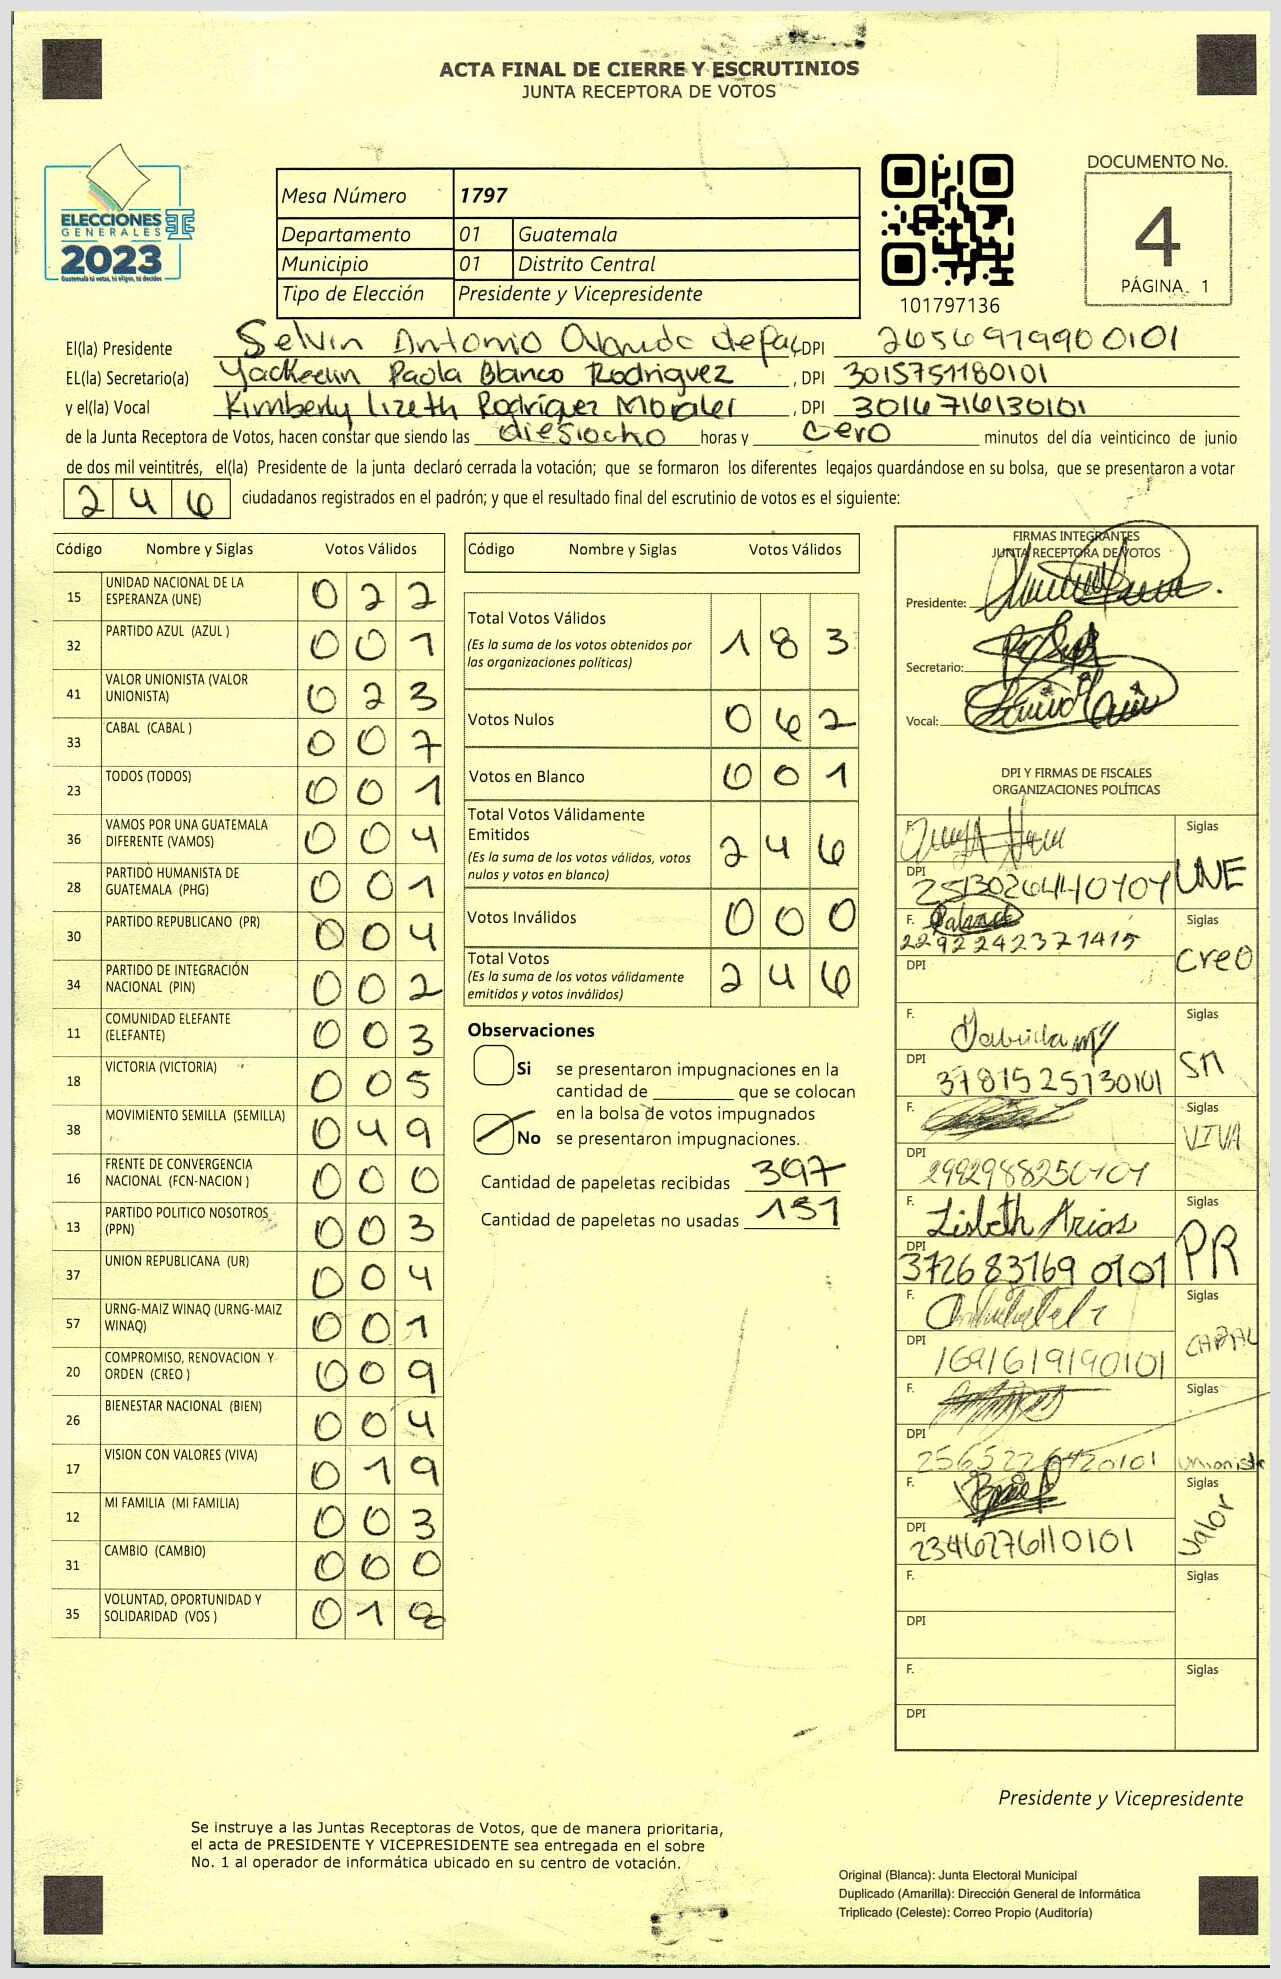 ACTA FINAL DE CIERRE Y ESCRUTINIOS
JUNTA RECEPTORA DE VOTOS
ELECCIONES
GENERALES
2023
Guatemala tú votas, tú eliges, tú decides
Mesa Número 1797
Departamento 01 Guatemala
Municipio 01 Distrito Central
Tipo de Elección Presidente y Vicepresidente
101797136
DOCUMENTO No.
4
PÁGINA 1
El(la) Presidente Selvin Antonio , DPI
EL(la) Secretario(a) Yackelin Paola Blanco Rodriguez , DPI 3015751180101
y el(la) Vocal Kimberly Lizeth Rodríguez Morales , DPI 3014716130101
de la Junta Receptora de Votos, hacen constar que siendo las diesiocho horas y cero minutos del día veinticinco de junio
de dos mil veintitrés, el(la) Presidente de la junta declaró cerrada la votación; que se formaron los diferentes legajos guardándose en su bolsa, que se presentaron a votar
246 ciudadanos registrados en el padrón; y que el resultado final del escrutinio de votos es el siguiente:
Código Nombre y Siglas Votos Válidos
15 UNIDAD NACIONAL DE LA ESPERANZA (UNE) 022
32 PARTIDO AZUL (AZUL ) 001
41 VALOR UNIONISTA (VALOR UNIONISTA) 023
33 CABAL (CABAL ) 007
23 TODOS (TODOS) 001
36 VAMOS POR UNA GUATEMALA DIFERENTE (VAMOS) 004
28 PARTIDO HUMANISTA DE GUATEMALA (PHG) 001
30 PARTIDO REPUBLICANO (PR) 004
34 PARTIDO DE INTEGRACIÓN NACIONAL (PIN) 002
11 COMUNIDAD ELEFANTE (ELEFANTE) 003
18 VICTORIA (VICTORIA) 005
38 MOVIMIENTO SEMILLA (SEMILLA) 049
16 FRENTE DE CONVERGENCIA NACIONAL (FCN-NACION ) 000
13 PARTIDO POLITICO NOSOTROS (PPN) 003
37 UNION REPUBLICANA (UR) 004
57 URNG-MAIZ WINAQ (URNG-MAIZ WINAQ) 001
20 COMPROMISO, RENOVACION Y ORDEN (CREO ) 009
26 BIENESTAR NACIONAL (BIEN) 004
17 VISION CON VALORES (VIVA) 019
12 MI FAMILIA (MI FAMILIA) 003
31 CAMBIO (CAMBIO) 000
35 VOLUNTAD, OPORTUNIDAD Y SOLIDARIDAD (VOS ) 018
Código Nombre y Siglas Votos Válidos
Total Votos Válidos 183
(Es la suma de los votos obtenidos por
las organizaciones políticas)
Votos Nulos 062
Votos en Blanco 001
Total Votos Válidamente
Emitidos 246
(Es la suma de los votos válidos, votos
nulos y votos en blanco)
Votos Inválidos 000
Total Votos 246
(Es la suma de los votos válidamente
emitidos y votos inválidos)
Observaciones
Si se presentaron impugnaciones en la
cantidad de ________ que se colocan
en la bolsa de votos impugnados
No se presentaron impugnaciones.
Cantidad de papeletas recibidas 397
Cantidad de papeletas no usadas 151
FIRMAS INTEGRANTES
JUNTA RECEPTORA DE VOTOS
Presidente:
Secretario:
Vocal:
DPI Y FIRMAS DE FISCALES
ORGANIZACIONES POLÍTICAS
F. Siglas
DPI UNE
F. Siglas
2292242371415
DPI creo
F. Siglas
DPI 3781525730101
F. Siglas
DPI VIVA
F. Lisbeth Arias Siglas
DPI 3726837690101 PR
F. Siglas
DPI 1691619190101 CABAL
F. Siglas
DPI Unionista
F. Siglas
DPI 2346276110101 Valor
F. Siglas
DPI
F. Siglas
DPI
Presidente y Vicepresidente
Se instruye a las Juntas Receptoras de Votos, que de manera prioritaria,
el acta de PRESIDENTE Y VICEPRESIDENTE sea entregada en el sobre
No. 1 al operador de informática ubicado en su centro de votación.
Original (Blanca): Junta Electoral Municipal
Duplicado (Amarilla): Dirección General de Informática
Triplicado (Celeste): Correo Propio (Auditoría)